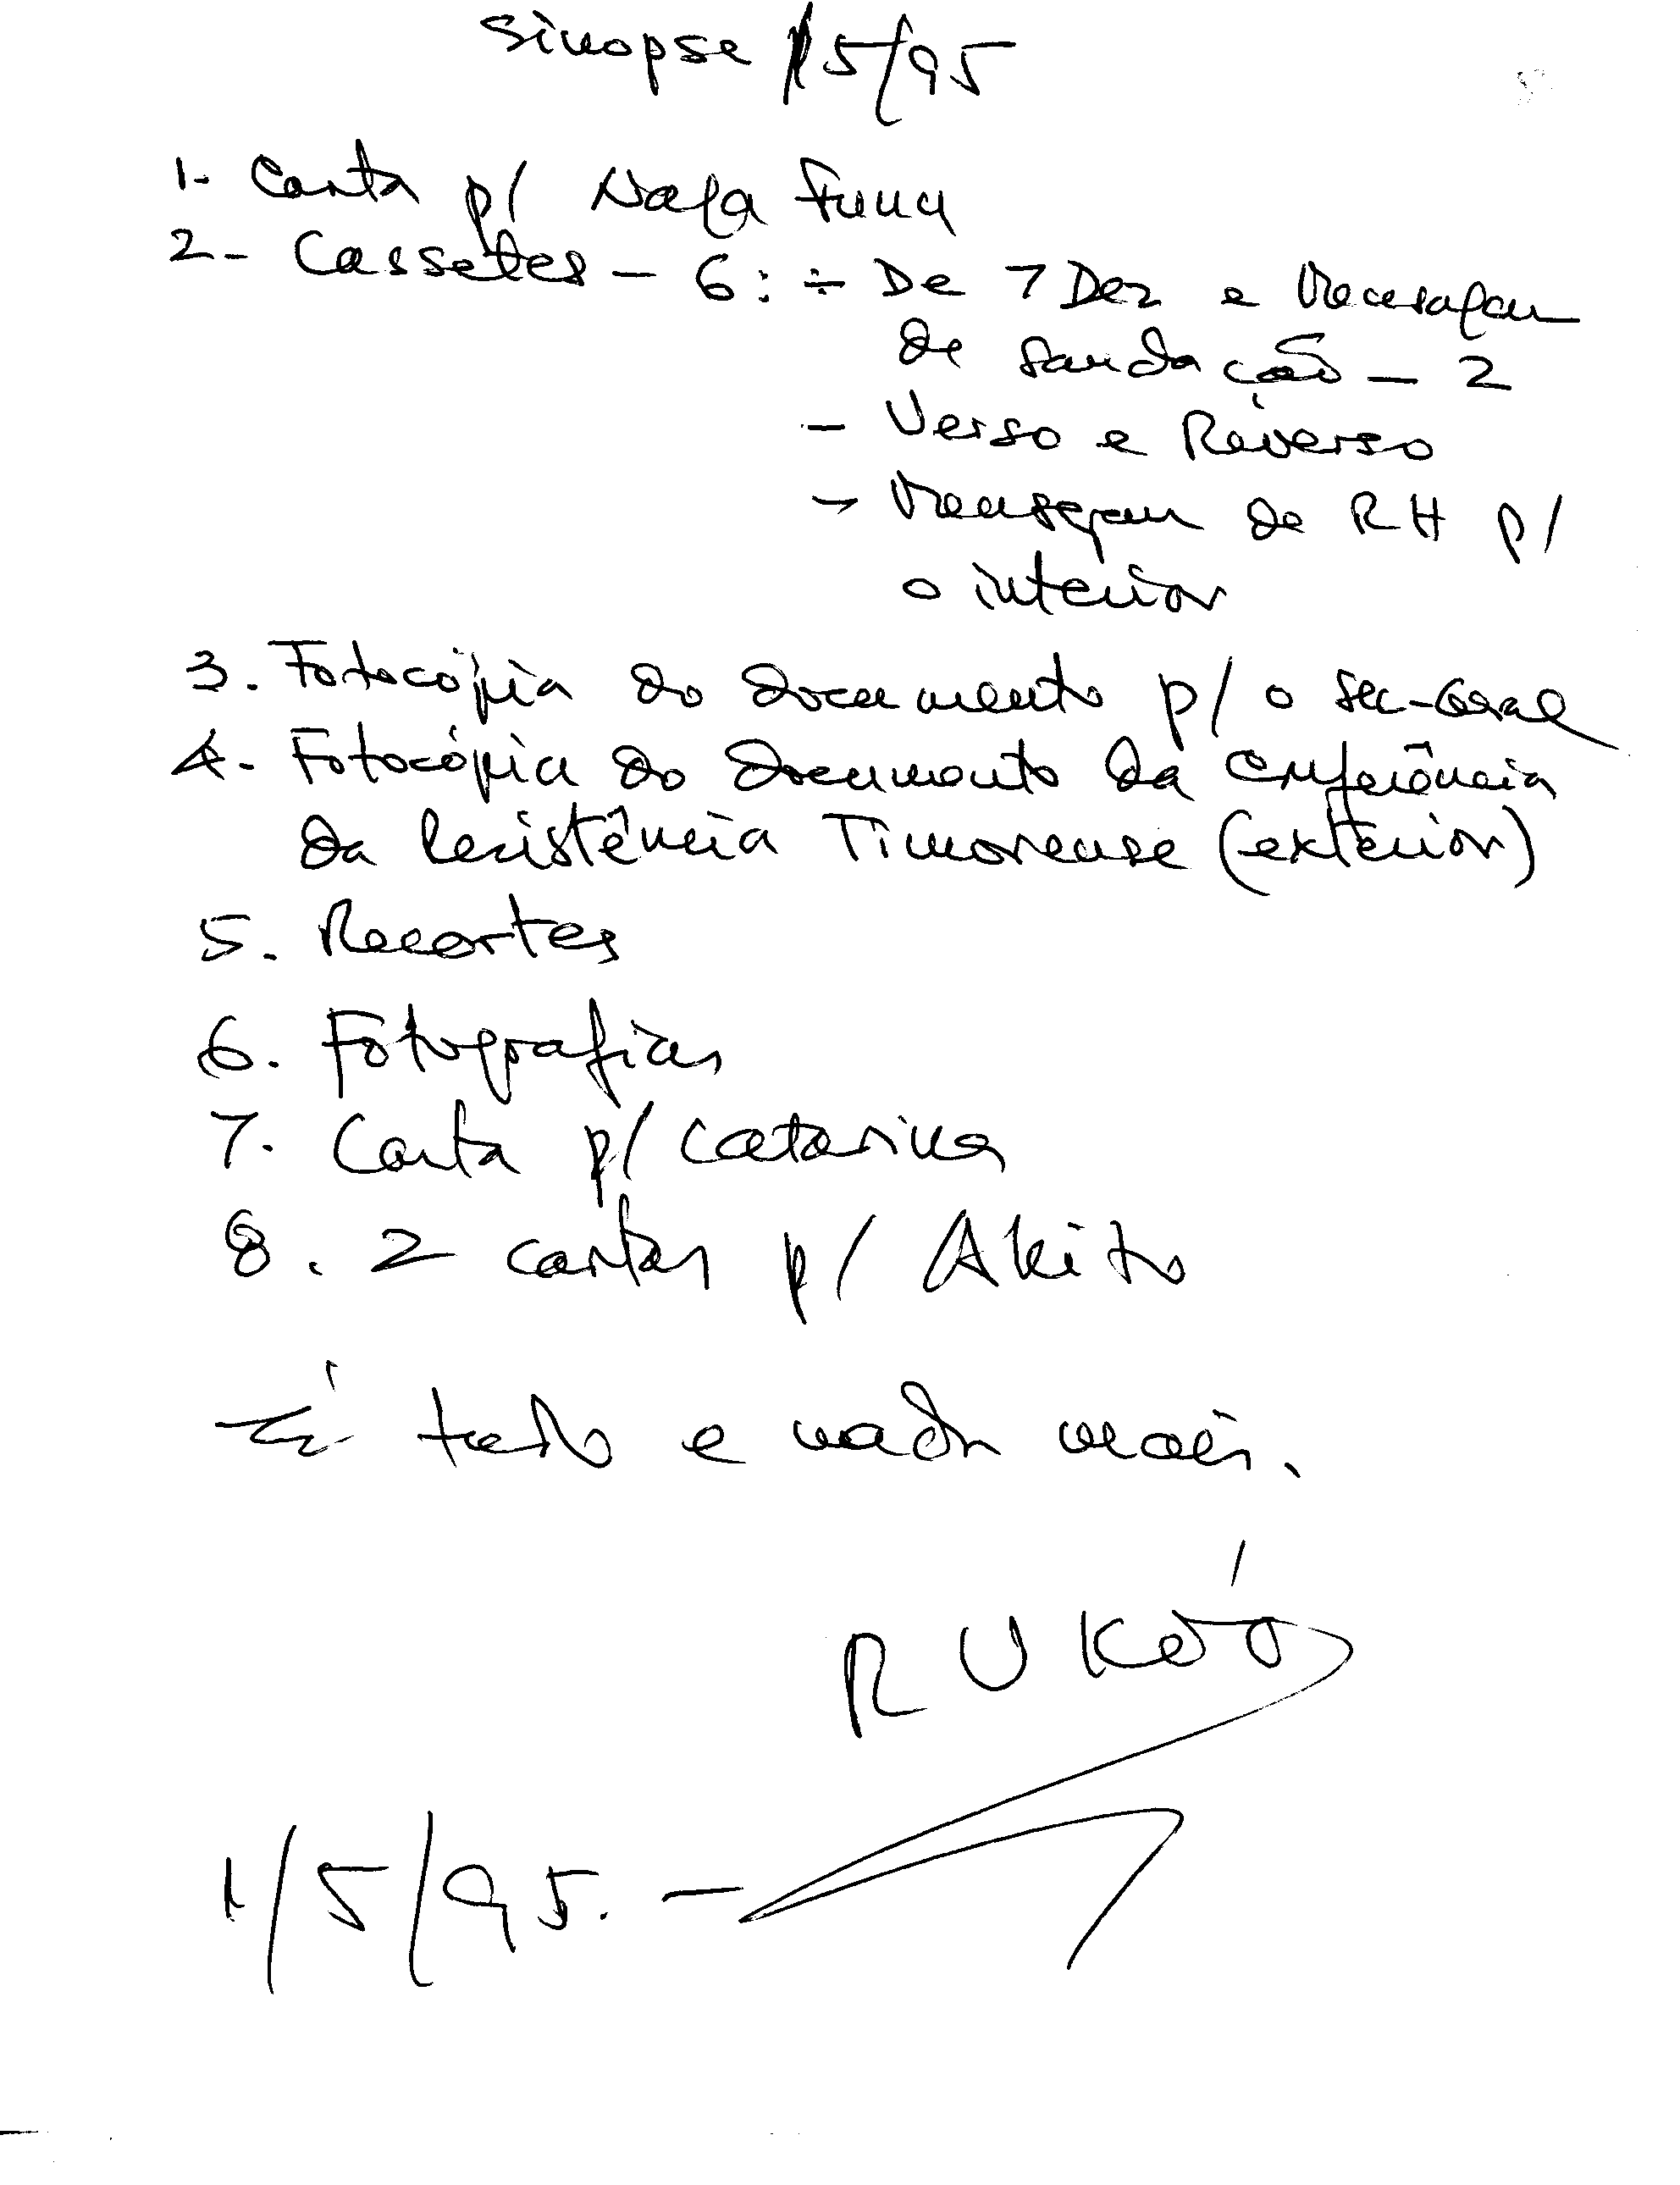 Sinopse 15/95
1- Carta p/ Nafa Funu
2- Cassetes - 6: ÷ De 7 Dez e Mensagem
de Saudação - 2
- Verso e Reverso
- Mensagem de RH p/
o interior
3. Fotocópia do documento p/ o Sec-Geral
4. Fotocópia do documento da Conferência
da Resistência Timorense (exterior)
5. Recortes
6. Fotografias
7. Carta p/ Catarina
8. 2 cartas p/ Akito
É tudo e nada mais.
RUKÓ
1/5/95. -